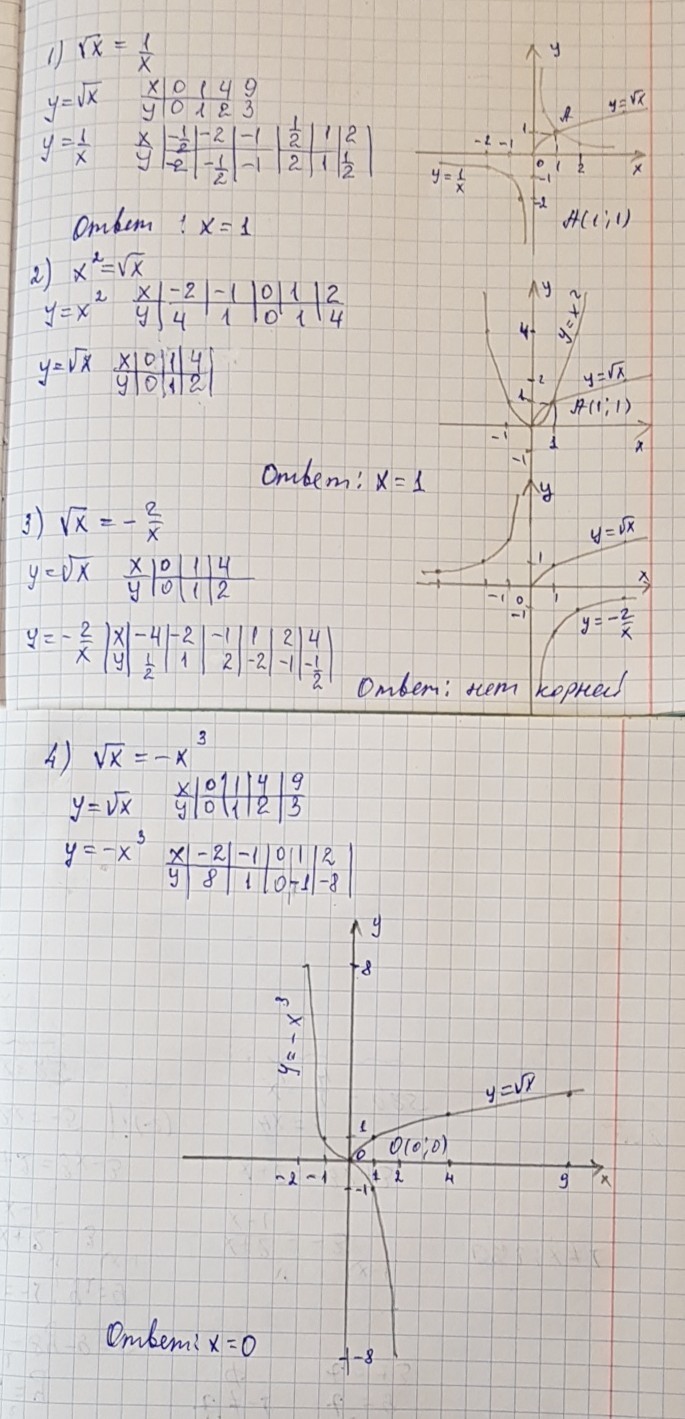 1) √x = 1/x
y=√x x | 0 | 1 | 4 | 9
y | 0 | 1 | 2 | 3
y = 1/x x | -1/2 | -2 | -1 | 1/2 | 1 | 2
y | -2 | -1/2 | -1 | 2 | 1 | 1/2
y
y=√x
A
1
-2 -1 0 1 2 x
y=1/x
-1
-2
A(1;1)
Ответ: x=1
2) x²=√x
y=x² x | -2 | -1 | 0 | 1 | 2
y | 4 | 1 | 0 | 1 | 4
y=√x x | 0 | 1 | 4
y | 0 | 1 | 2
y
y=x²
4
2
y=√x
1
A(1;1)
-1 1 x
-1
Ответ: x=1
3) √x = -2/x
y=√x x | 0 | 1 | 4
y | 0 | 1 | 2
y=-2/x x | -4 | -2 | -1 | 1 | 2 | 4
y | 1/2 | 1 | 2 | -2 | -1 | -1/2
y
y=√x
1
x
-1 0 1
-1
y=-2/x
Ответ: нет корней
4) √x = -x³
y=√x x | 0 | 1 | 4 | 9
y | 0 | 1 | 2 | 3
y=-x³ x | -2 | -1 | 0 | 1 | 2
y | 8 | 1 | 0 | -1 | -8
y
8
y=-x³
y=√x
1
0 O(0;0)
-2 -1 1 2 4 9 x
-1
Ответ: x=0
-8